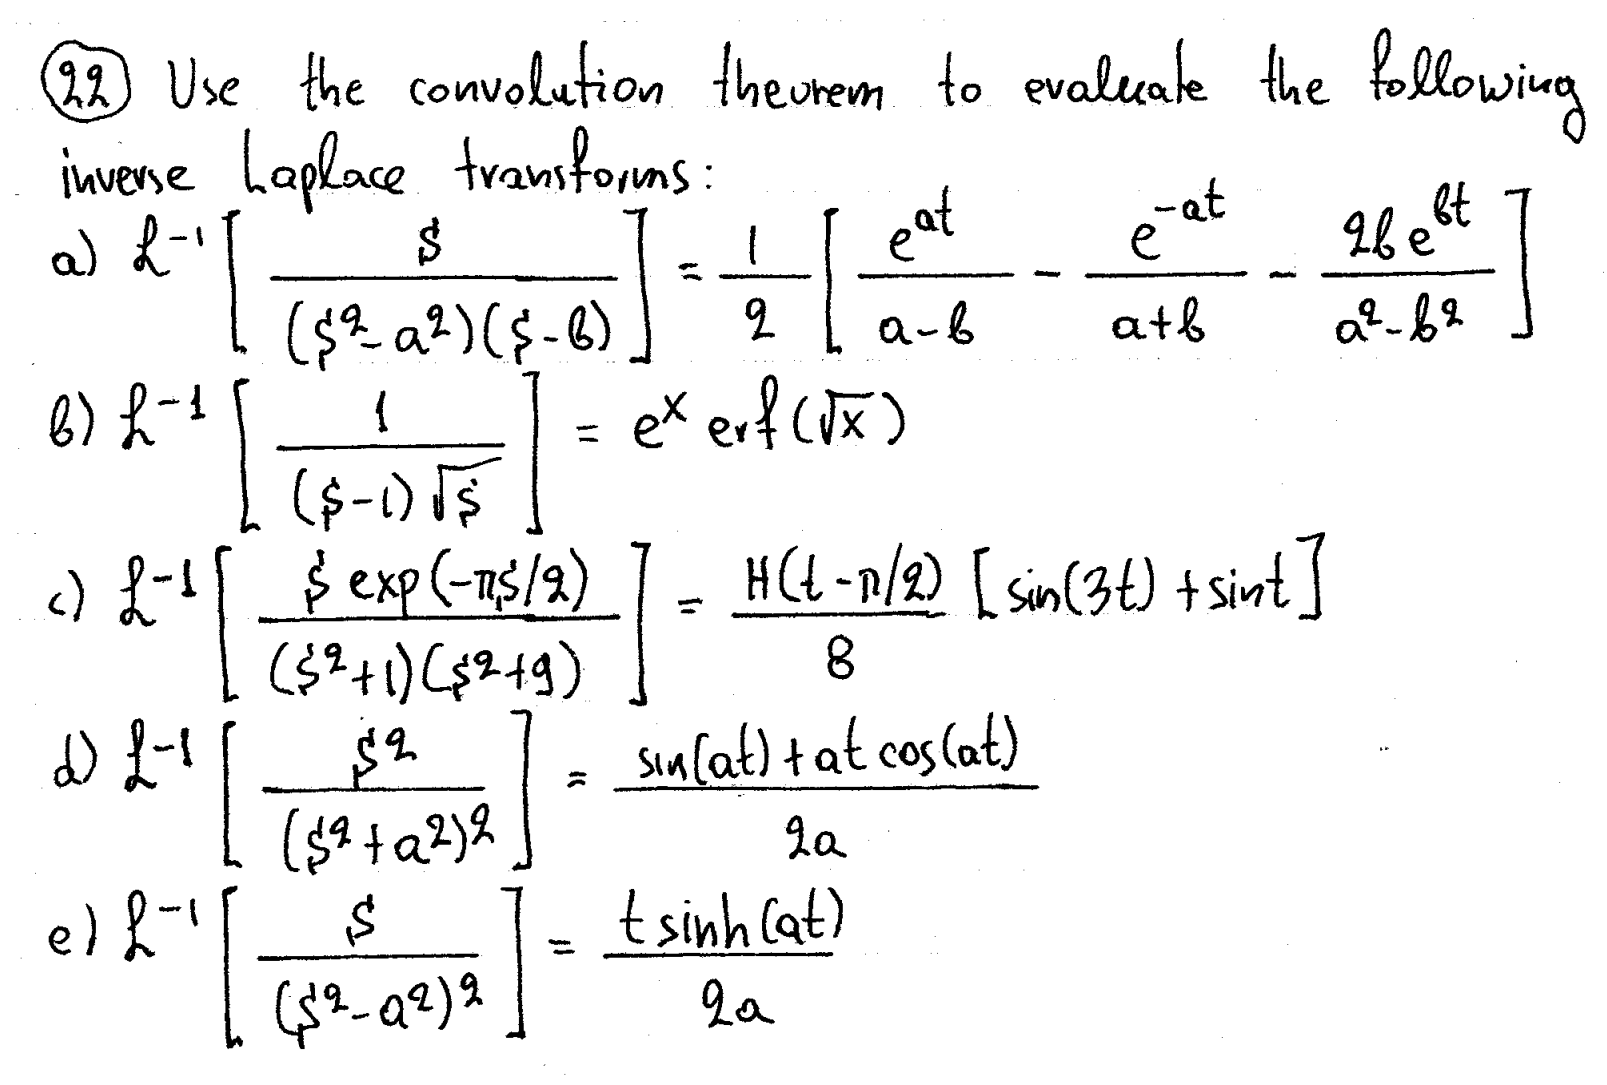 22 Use the convolution theorem to evaluate the following
inverse Laplace transforms:
a) ℒ⁻¹[ s / ((s²-a²)(s-b)) ] = 1/2 [ e^{at}/(a-b) - e^{-at}/(a+b) - 2b e^{bt}/(a²-b²) ]
b) ℒ⁻¹[ 1 / ((s-1)√s) ] = e^x erf(√x)
c) ℒ⁻¹[ s exp(-πs/2) / ((s²+1)(s²+9)) ] = H(t-π/2)/8 [sin(3t) + sint]
d) ℒ⁻¹[ s² / (s²+a²)² ] = (sin(at) + at cos(at)) / 2a
e) ℒ⁻¹[ s / (s²-a²)² ] = t sinh(at) / 2a